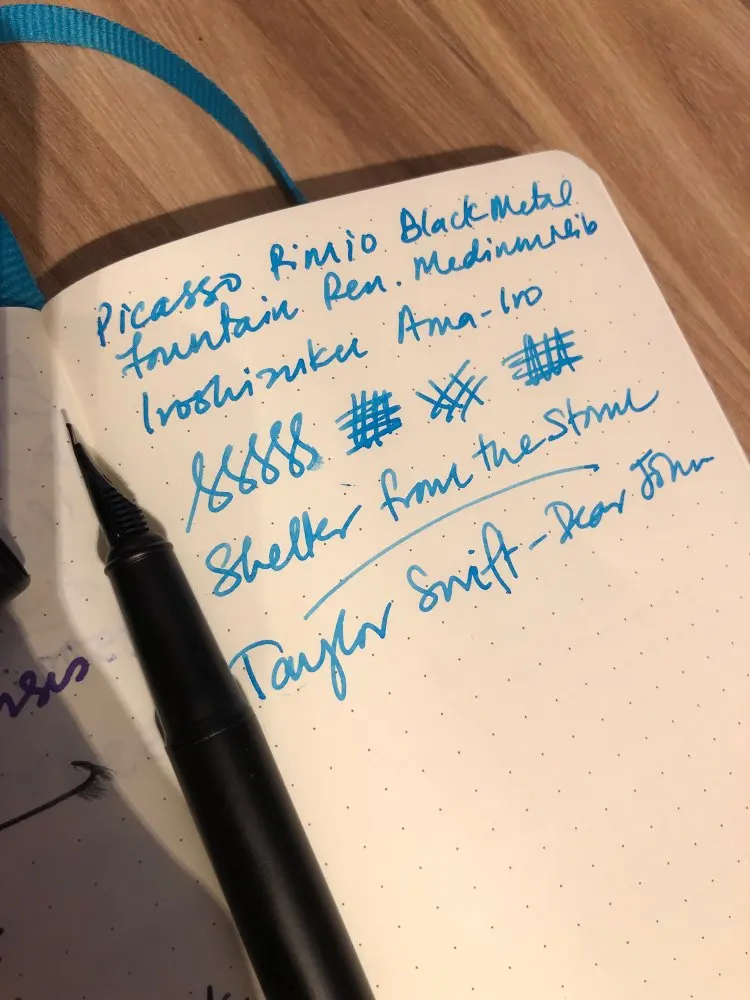 Picasso Rimio Black Metal
Fountain Pen. Medium Nib
Iroshizuku Ama-Iro
Shelter from the Storm
Taylor Swift - Dear John